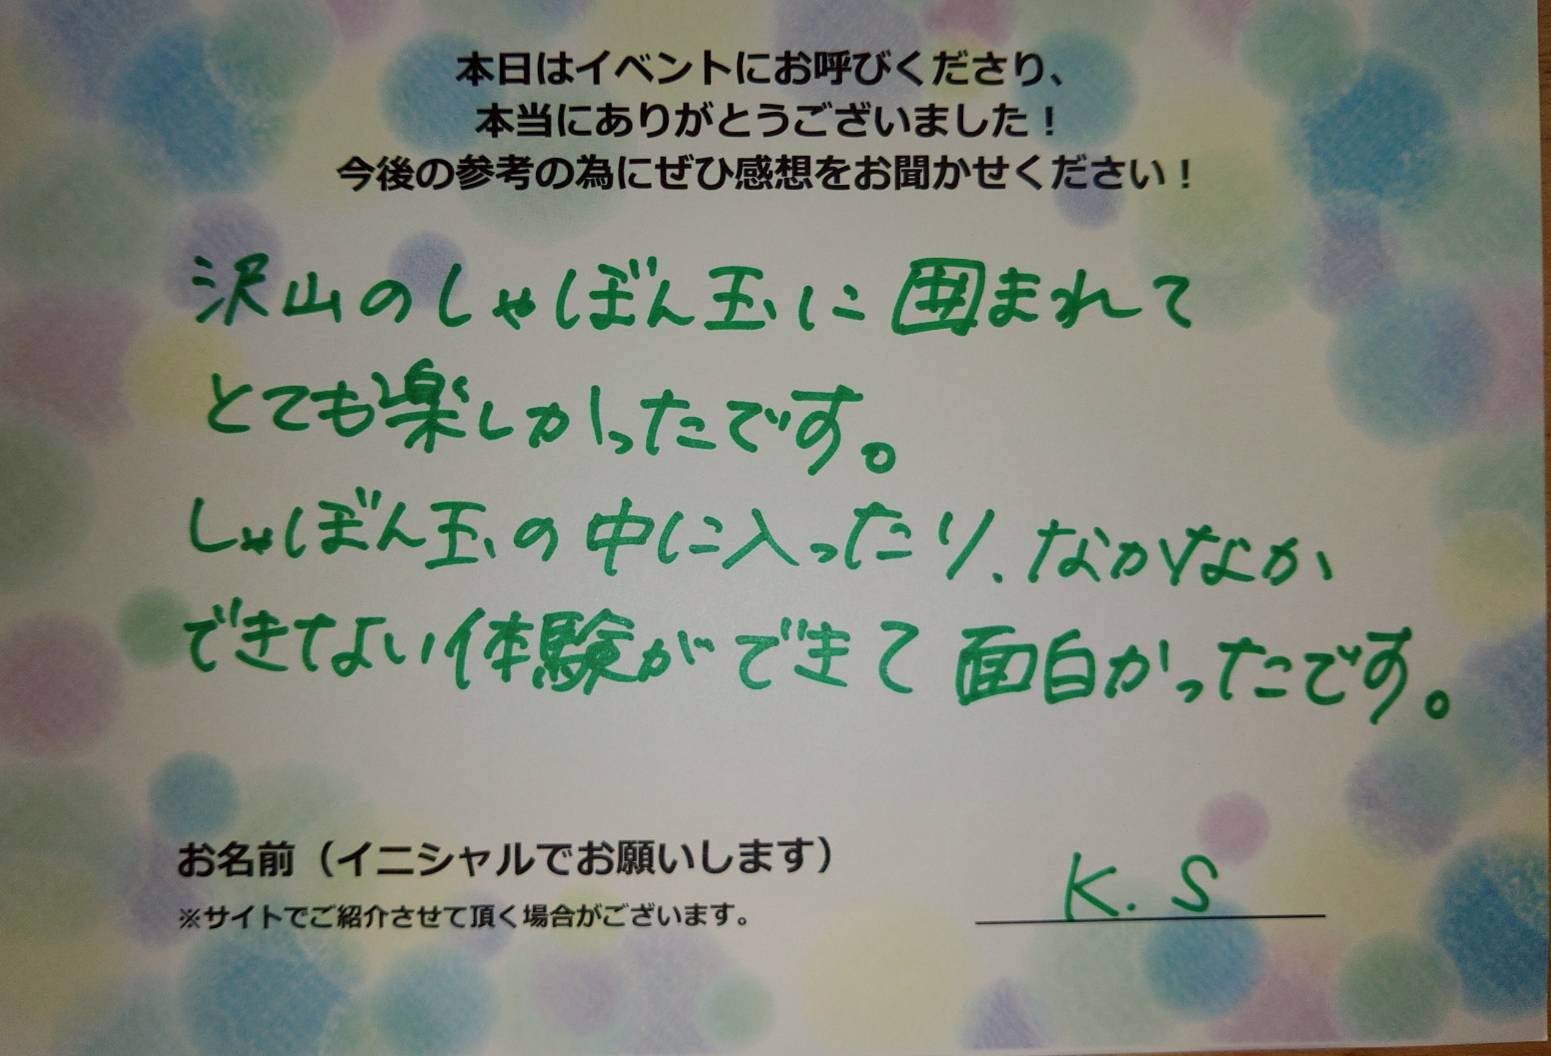 本日はイベントにお呼びくださり、
本当にありがとうございました！
今後の参考の為にぜひ感想をお聞かせください！
沢山のしゃぼん玉に囲まれて
とても楽しかったです。
しゃぼん玉の中に入ったり、なかなか
できない体験ができて面白かったです。
お名前（イニシャルでお願いします）
※サイトでご紹介させて頂く場合がございます。
K.S